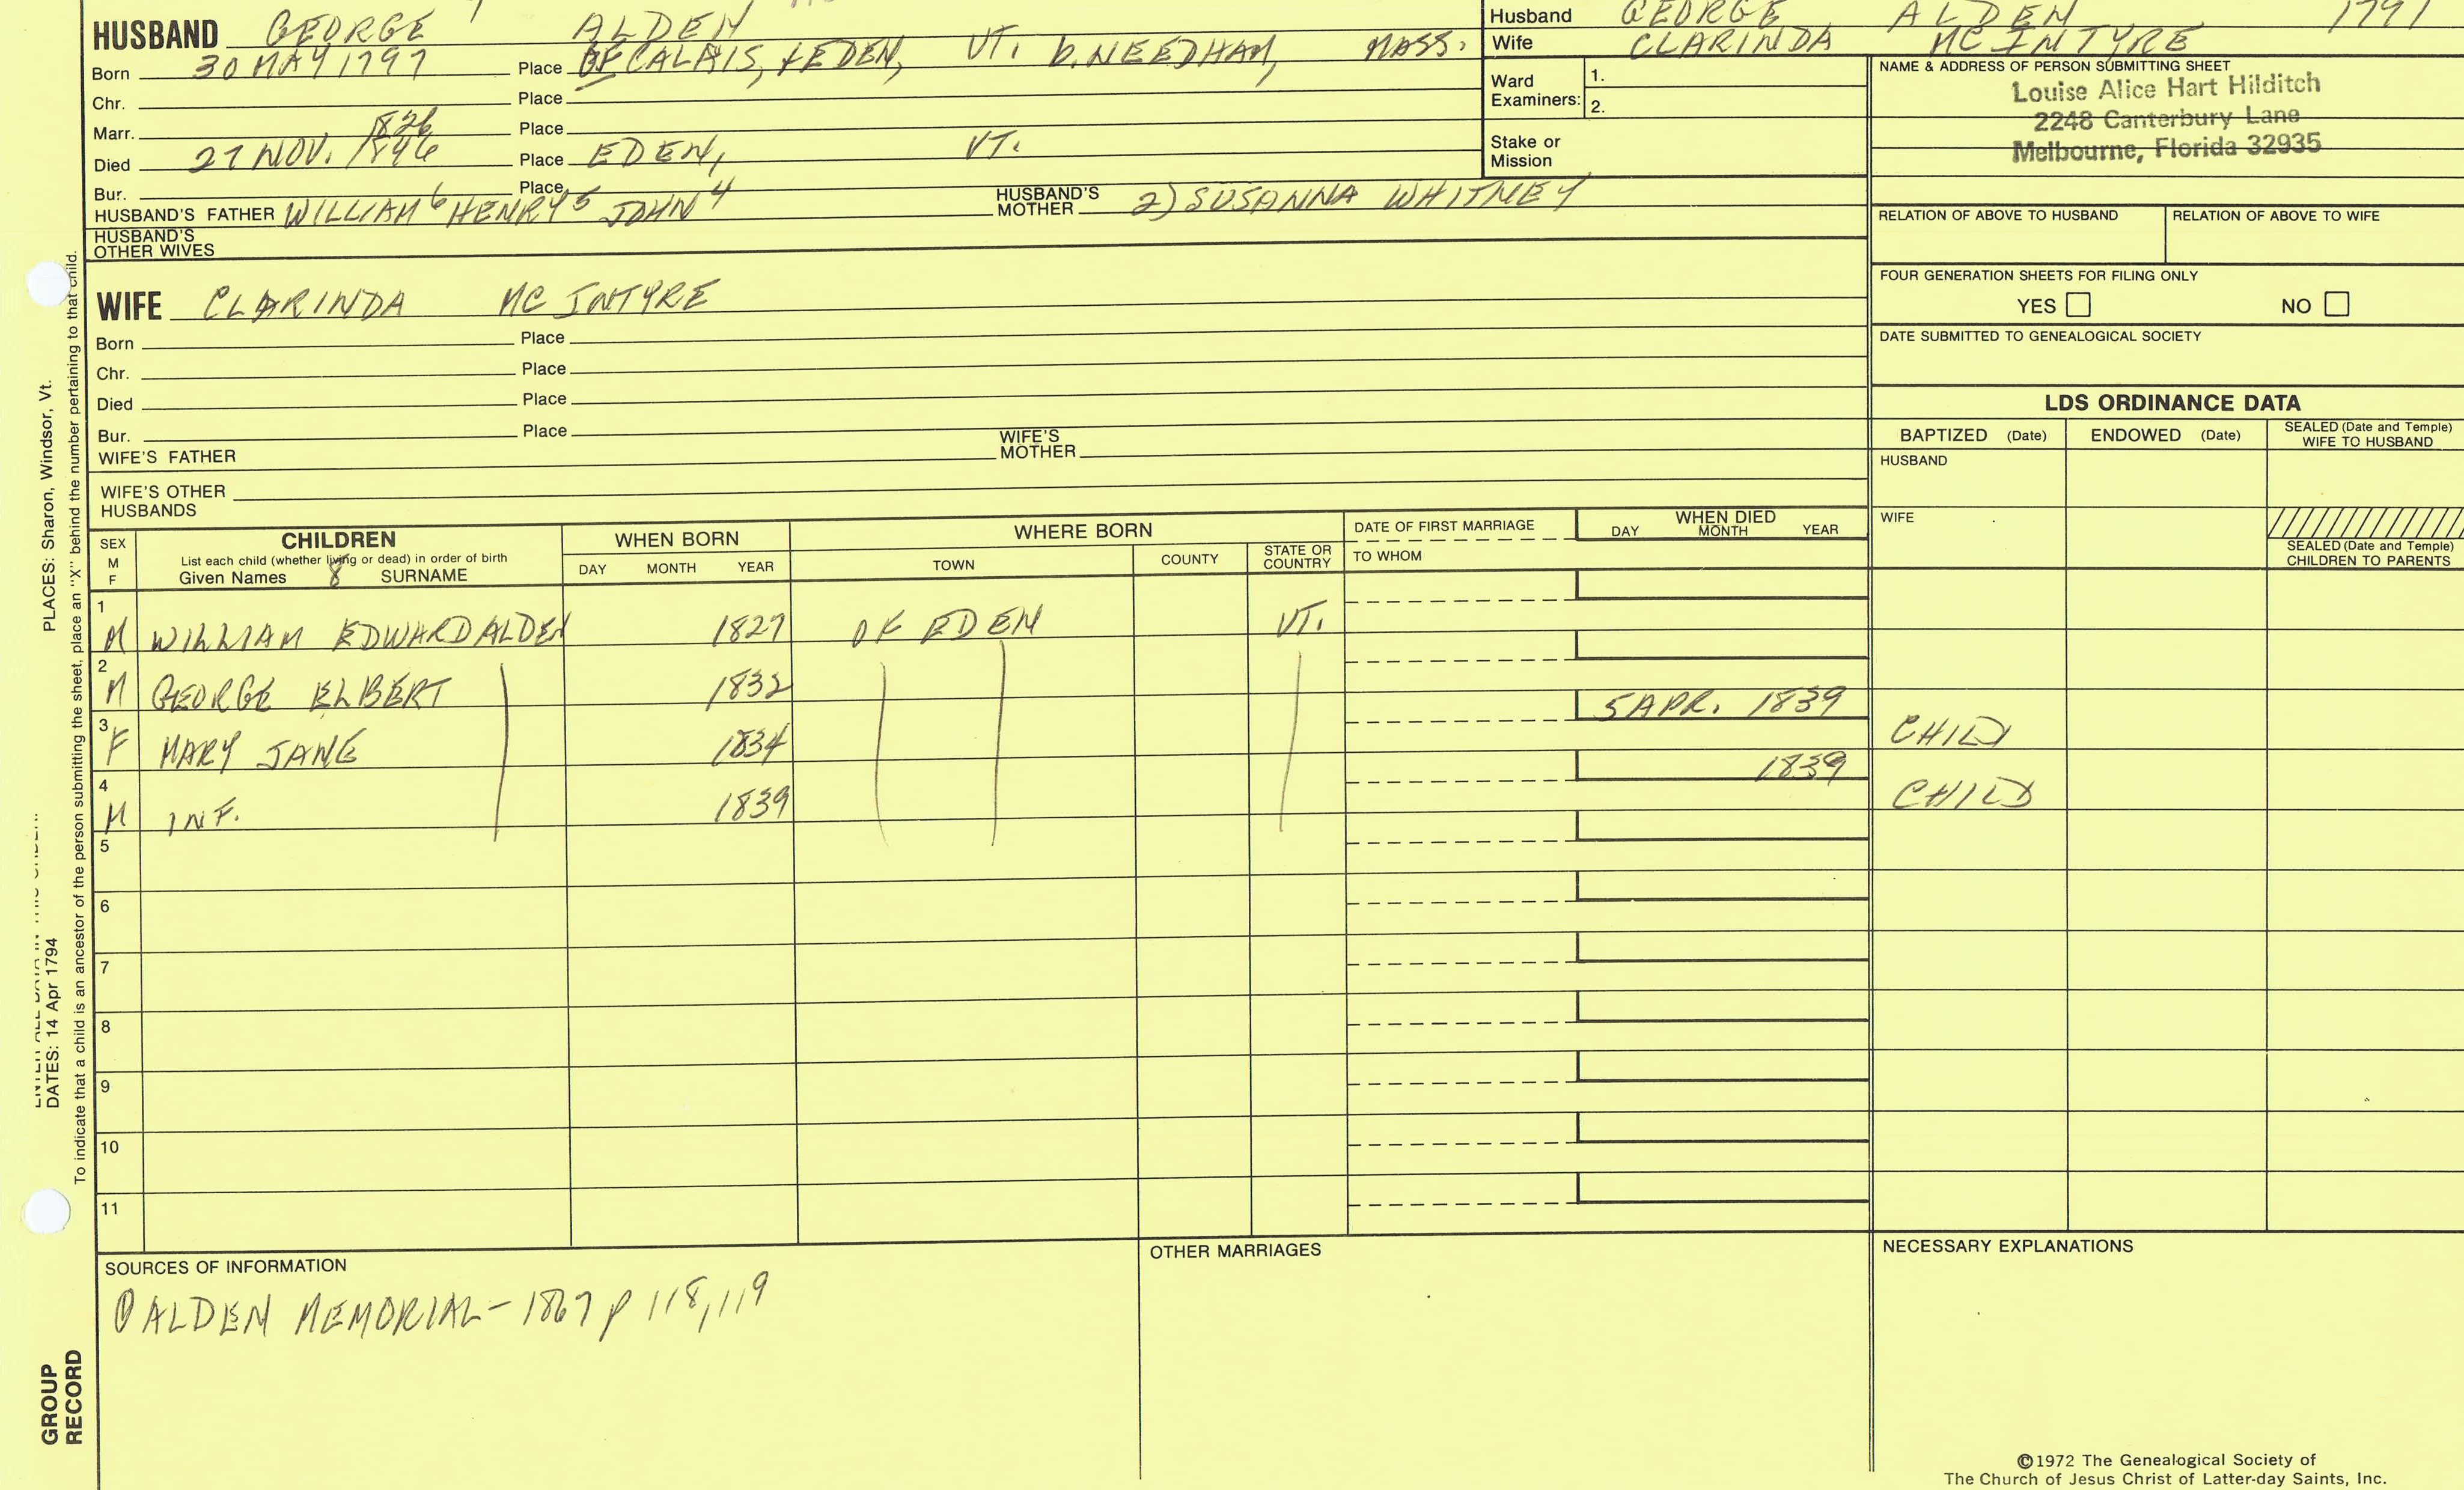 HUSBAND GEORGE 7 ALDEN
Born 30 MAY 1797 Place OF CALAIS, & EDEN, VT. b. NEEDHAM, MASS.
Chr. Place
Marr. 1826 Place
Died 27 NOV. 1846 Place EDEN, VT.
Bur. Place
HUSBAND'S FATHER WILLIAM 6 HENRY 5 JOHN 4 HUSBAND'S MOTHER 2) SUSANNA WHITNEY
HUSBAND'S OTHER WIVES
WIFE CLARINDA MC INTYRE
Born Place
Chr. Place
Died Place
Bur. Place
WIFE'S FATHER WIFE'S MOTHER
WIFE'S OTHER HUSBANDS
Husband GEORGE ALDEN 1797
Wife CLARINDA MC INTYRE
Ward Examiners: 1.
2.
Stake or Mission
NAME & ADDRESS OF PERSON SUBMITTING SHEET
Louise Alice Hart Hilditch
2248 Canterbury Lane
Melbourne, Florida 32935
RELATION OF ABOVE TO HUSBAND RELATION OF ABOVE TO WIFE
FOUR GENERATION SHEETS FOR FILING ONLY
YES NO
DATE SUBMITTED TO GENEALOGICAL SOCIETY
LDS ORDINANCE DATA
BAPTIZED (Date) ENDOWED (Date) SEALED (Date and Temple) WIFE TO HUSBAND
HUSBAND
WIFE
SEALED (Date and Temple) CHILDREN TO PARENTS
SEX M F
CHILDREN
List each child (whether living or dead) in order of birth
Given Names 8 SURNAME
WHEN BORN
DAY MONTH YEAR
WHERE BORN
TOWN COUNTY STATE OR COUNTRY
DATE OF FIRST MARRIAGE
TO WHOM
WHEN DIED
DAY MONTH YEAR
1 M WILLIAM EDWARD ALDEN 1827 OF EDEN VT.
2 M GEORGE ELBERT 1832
3 F MARY JANE 1834 5 APR. 1839 CHILD
4 M INF. 1839 1839 CHILD
5
6
7
8
9
10
11
SOURCES OF INFORMATION
ALDEN MEMORIAL - 1867 p 118, 119
OTHER MARRIAGES
NECESSARY EXPLANATIONS
©1972 The Genealogical Society of
The Church of Jesus Christ of Latter-day Saints, Inc.
DATES: 14 Apr 1794 PLACES: Sharon, Windsor, Vt.
To indicate that a child is an ancestor of the person submitting the sheet, place an "X" behind the number pertaining to that child.
GROUP
RECORD